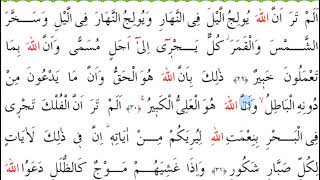 اَلَمْ تَرَ اَنَّ اللّٰهَ يُولِجُ الَّيْلَ فِي النَّهَارِ وَيُولِجُ النَّهَارَ فِي الَّيْلِ وَسَخَّرَ
الشَّمْسَ وَالْقَمَرَ كُلٌّ يَجْر۪ٓى اِلٰٓى اَجَلٍ مُسَمًّى وَاَنَّ اللّٰهَ بِمَا
تَعْمَلُونَ خَب۪يرٌ ﴿٢٩﴾ ذٰلِكَ بِاَنَّ اللّٰهَ هُوَ الْحَقُّ وَاَنَّ مَا يَدْعُونَ مِنْ
دُونِهِ الْبَاطِلُ وَاَنَّ اللّٰهَ هُوَ الْعَلِيُّ الْكَب۪يرُ ﴿٣٠﴾ اَلَمْ تَرَ اَنَّ الْفُلْكَ تَجْر۪ى
فِي الْبَحْرِ بِنِعْمَتِ اللّٰهِ لِيُرِيَكُمْ مِنْ اٰيَاتِه۪ اِنَّ ف۪ى ذٰلِكَ لَاٰيَاتٍ
لِكُلِّ صَبَّارٍ شَكُورٍ ﴿٣١﴾ وَاِذَا غَشِيَهُمْ مَوْجٌ كَالظُّلَلِ دَعَوُا اللّٰهَ